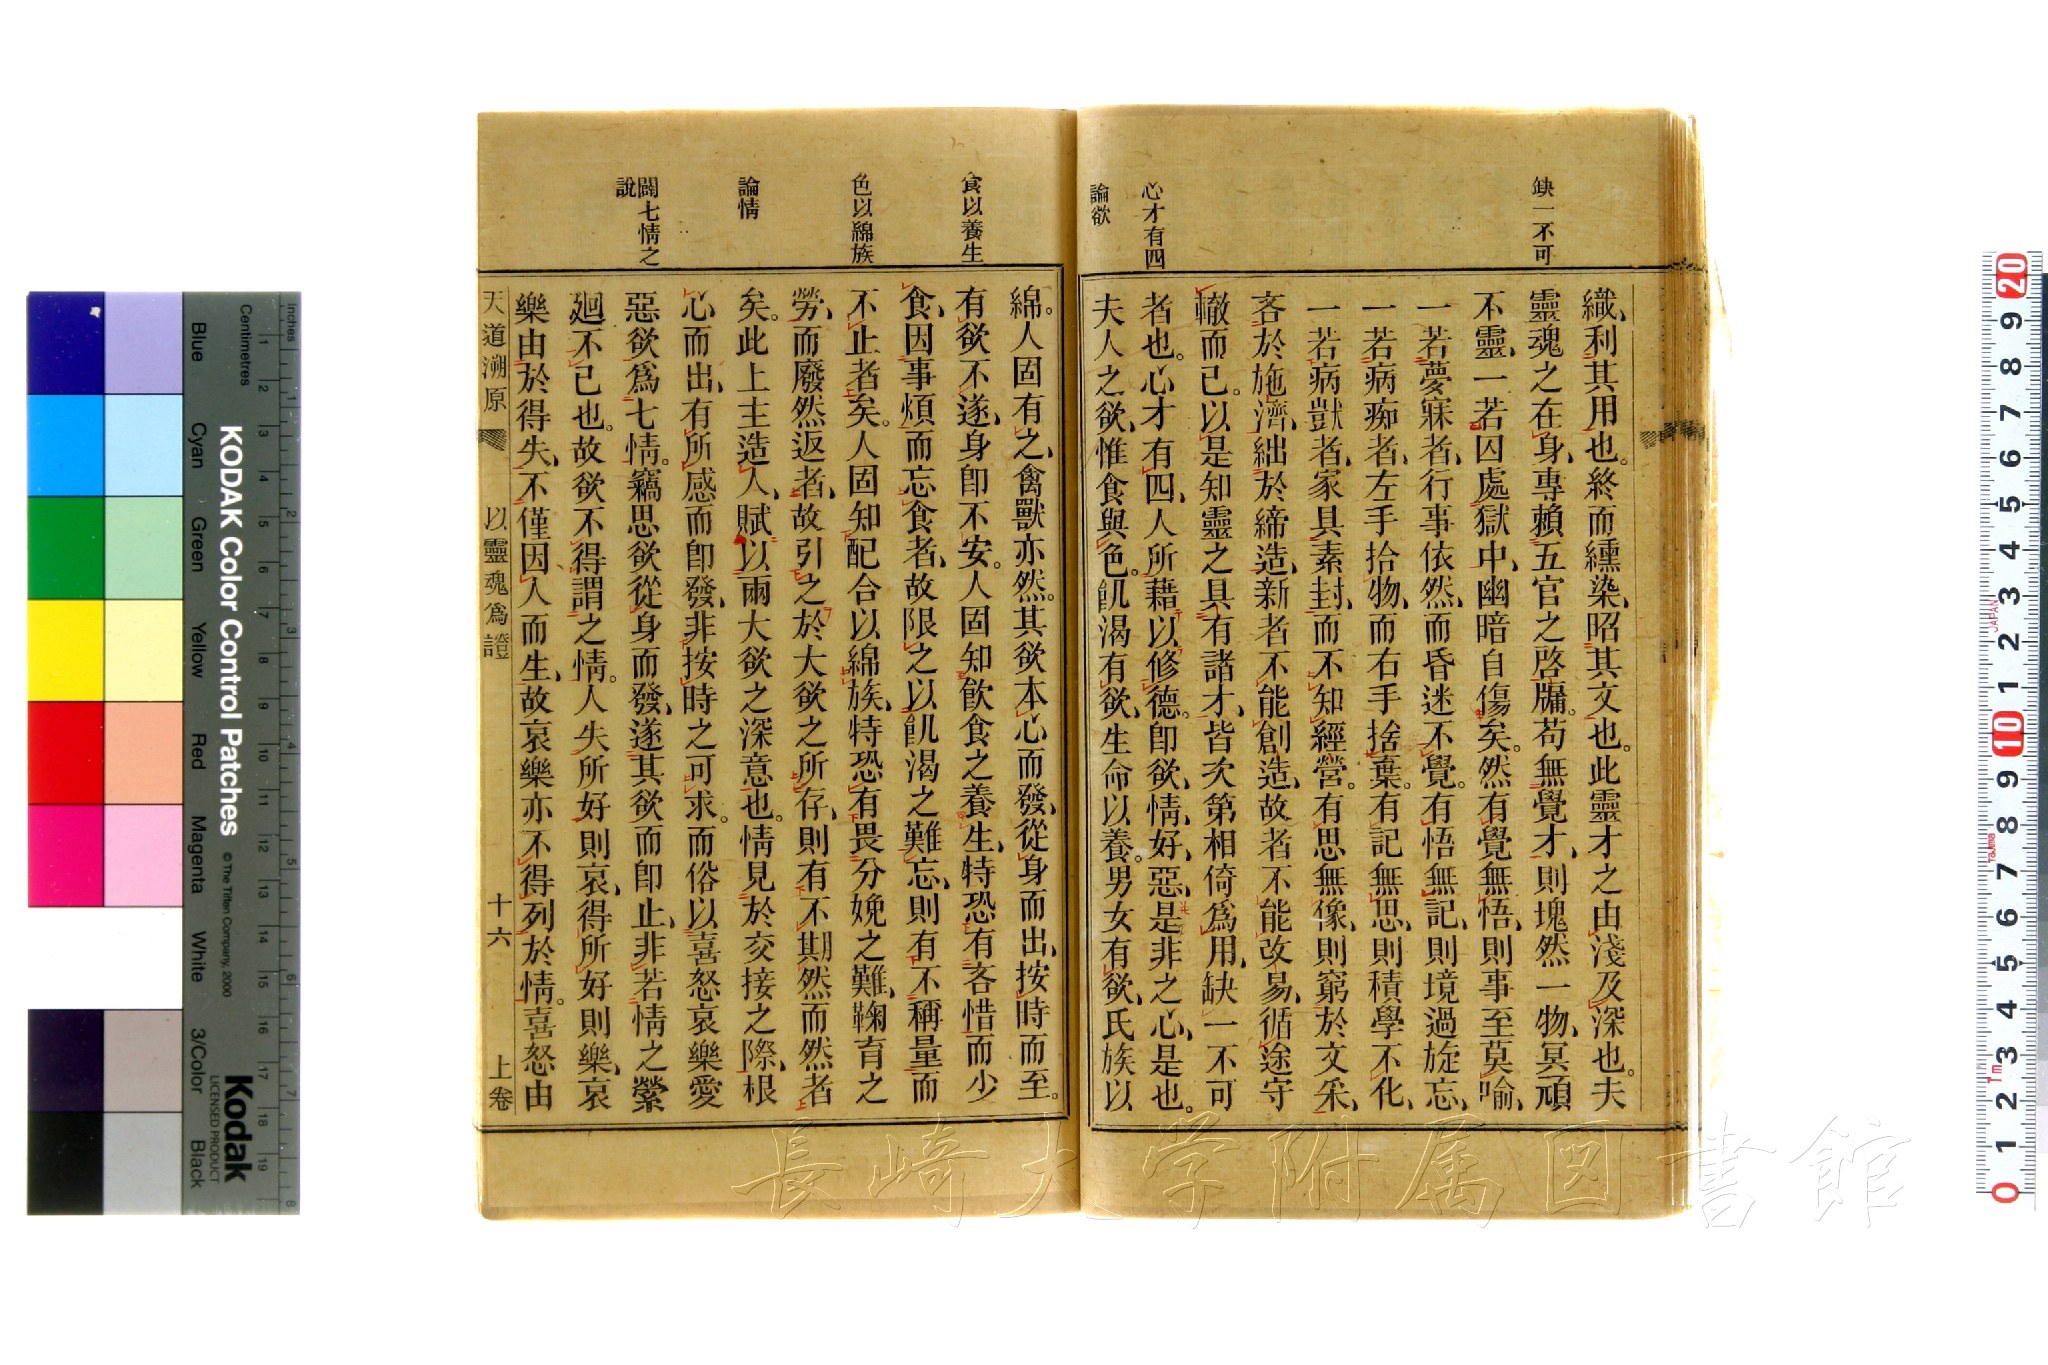 缺一不可
心才有四
論欲
織、利其用也。終而纁染、昭其文也。此靈才之由淺及深也。夫
靈魂之在身、專賴五官之啓牖。苟無覺才、則塊然一物、冥頑
不靈、一若囚處獄中、幽暗自傷矣。然有覺無悟、則事至莫喻、
一若夢寐者、行事依然、而昏迷不覺。有悟無記、則境過旋忘、
一若病痴者、左手拾物、而右手捨棄。有記無思、則積學不化、
一若病獃者、家具素封、而不知經營。有思無像、則窮於文采、
吝於施濟、絀於締造、新者不能創造、故者不能改易、循途守
轍而已。以是知靈之具有諸才、皆次第相倚爲用、缺一不可
者也。心才有四、人所藉以修德。卽欲、情、好、惡、是非之心、是也。
夫人之欲、惟食與色。飢渴有欲、生命以養。男女有欲、氏族以
食以養生
色以綿族
論情
闢七情之
說
綿。人固有之、禽獸亦然。其欲本心而發、從身而出、按時而至。
有欲不遂、身卽不安。人固知飮食之養生、特恐有吝惜而少
食、因事煩而忘食者、故限之以飢渴之難忘、則有不稱量而
不止者矣。人固知配合以綿族、特恐有畏分娩之難、鞠育之
勞、而廢然返者、故引之於大欲之所存、則有不期然而然者
矣。此上主造人、賦以兩大欲之深意也。情見於交接之際、根
心而出、有所感而卽發、非按時之可求。而俗以喜怒哀樂愛
惡欲爲七情。竊思欲從身而發、遂其欲而卽止、非若情之縈
廻不已也。故欲不得謂之情。人失所好則哀、得所好則樂、哀
樂由於得失、不僅因人而生、故哀樂亦不得列於情。喜怒由
天道溯原 以靈魂爲證 十六 上卷
KODAK Color Control Patches
© The Tiffen Company, 2000
Kodak
LICENSED PRODUCT
Inches
Centimetres
Blue
Cyan
Green
Yellow
Red
Magenta
White
3/Color
Black
1 2 3 4 5 6 7 8 9 10 11 12 13 14 15 16 17 18 19
20 9 8 7 6 5 4 3 2 1 10 9 8 7 6 5 4 3 2 1 0
JAPAN
TaJima
1m
長崎大学附属図書館